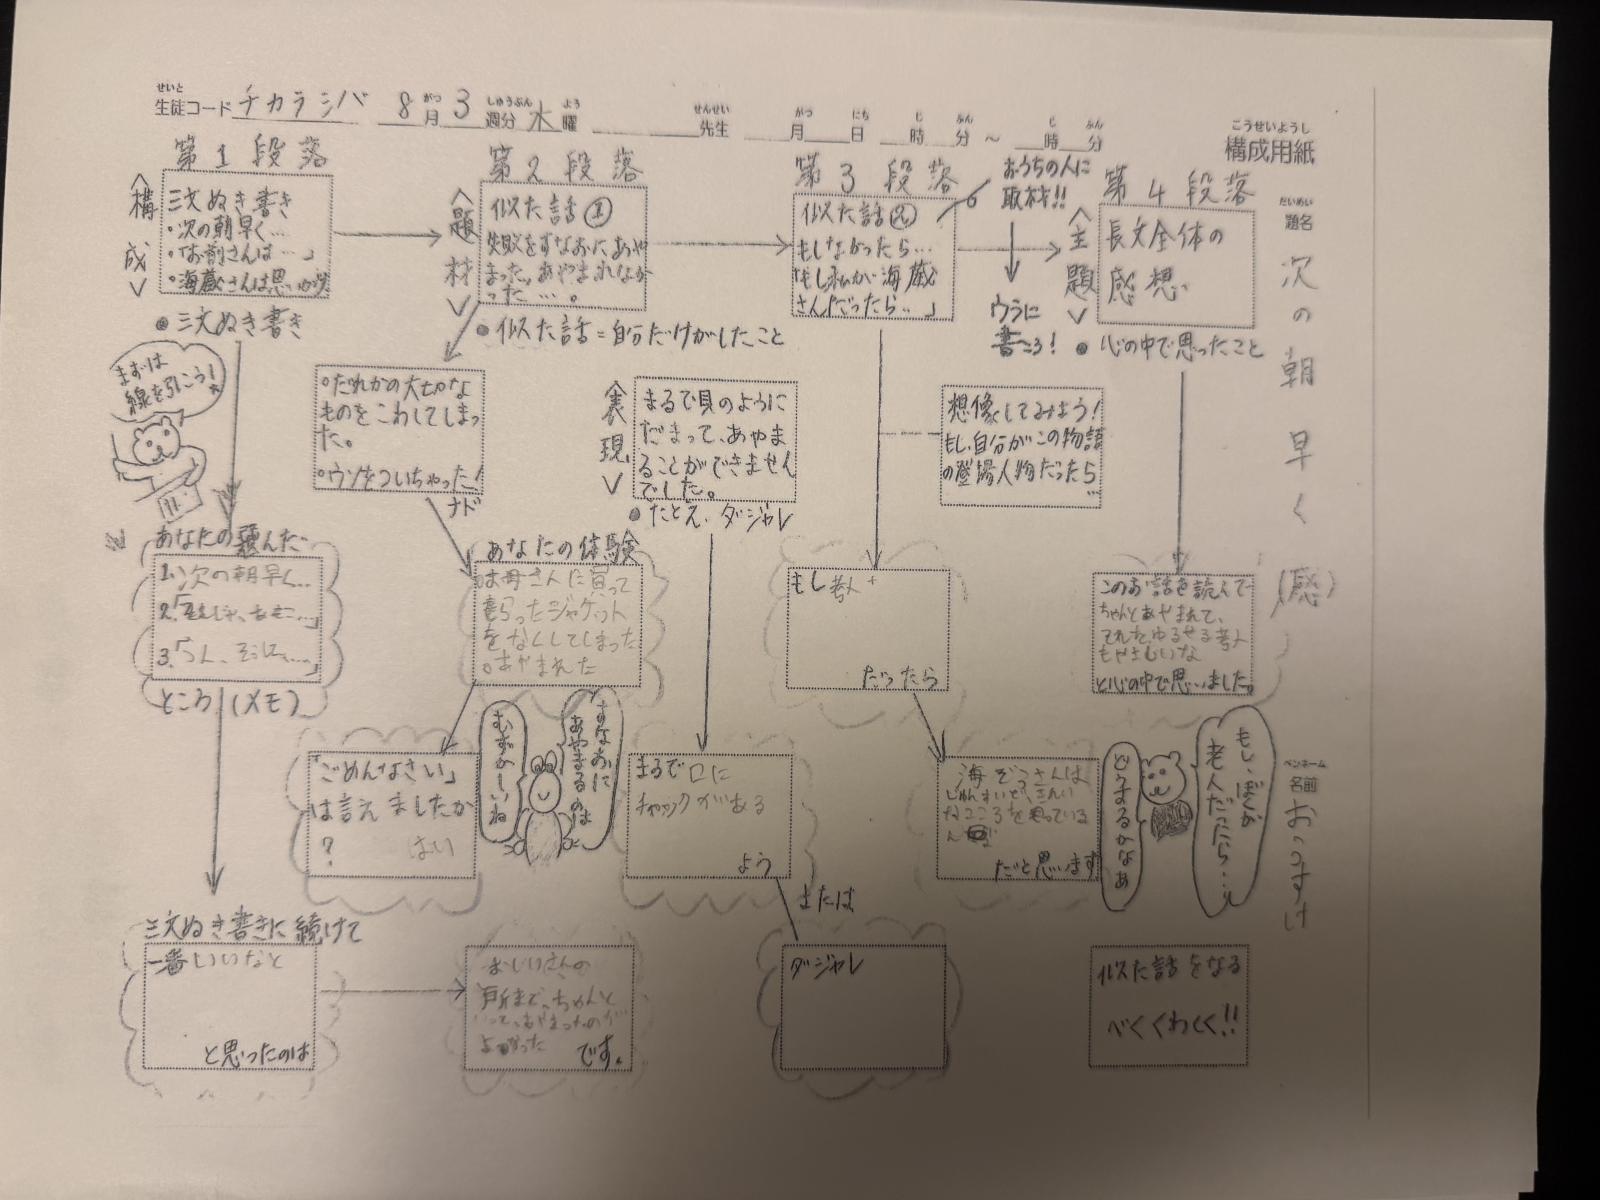 せいと
生徒コード チカラシバ 8月 3週分 水曜 先生 月 日 時 分 ～ 時 分
がつ しゅうぶん よう せんせい がつ にち じ ふん じ ふん
こうせいようし
構成用紙
だいめい
題名
次の朝早く
(感)
ペンネーム
名前
おのすけ
第1段落
〈構成〉
三文ぬき書き
・次の朝早く…
・「お前さんは…」
・海蔵さんは思いがけ
●三文ぬき書き
まずは
線を引こう！
あなたの選んだ
1.次の朝早く…
ところ(メモ)
三文ぬき書きに続けて
一番いいなと
と思ったのは
おじいさんの
所まで、ちゃんと
いって、あやまったのが
よかった
です。
第2段落
〈題材〉
似た話①
失敗をすなおにあや
まった。あやまれなか
った…。
●似た話=自分だけがしたこと
○だれかの大切な
ものをこわしてしまっ
た。
○ウソをついちゃった！
ナド
あなたの体験
○お母さんに買って
もらったジャケット
をなくしてしまった
○あやまれた
「ごめんなさい」
は言えましたか
？
はい
すなおに
あやまるのは
むずかしいね
〈表現〉
まるで貝のように
だまって、あやま
ることができません
でした。
●たとえ、ダジャレ
まるで口に
チャックがある
よう
または
ダジャレ
第3段落
似た話②
もしなかったら…
「もし私が海蔵
さんだったら…」
おうちの人に
取材!!
ウラに
書こう！
想像してみよう！
もし、自分がこの物語
の登場人物だったら
…
もし 老人
だったら
海ぞうさんは
じゅんすいで、きれい
なこころを思っている
だと思います
第4段落
〈主題〉
長文全体の
感想
●心の中で思ったこと
このお話を読んで
ちゃんとあやまれて、
それをゆるせる老人
もやさしいな
と心の中で思いました。
もし、ぼくが
老人だったら…
どうするかなぁ
似た話をなる
べくくわしく!!